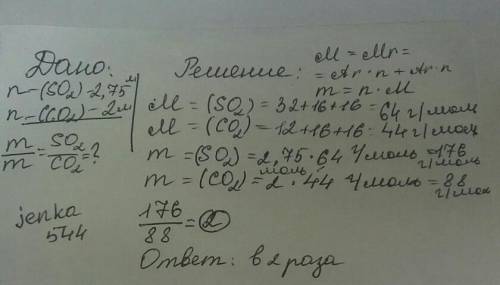 Дано:
n-(SO₂)-2,75 м
n-(CO₂)-2м
m/m = SO₂/CO₂ = ?
jenka
544
Решение:
M = Mr =
= Ar · n + Ar · n
m = n · M
M = (SO₂) = 32+16+16 = 64 г/моль
M = (CO₂) = 12+16+16 = 44 г/моль
m = (SO₂) = 2,75 · 64 г/моль = 176 г/моль
m = (CO₂) = 2 моль · 44 г/моль = 88 г/мол
176/88 = 2
Ответ: в 2 раза